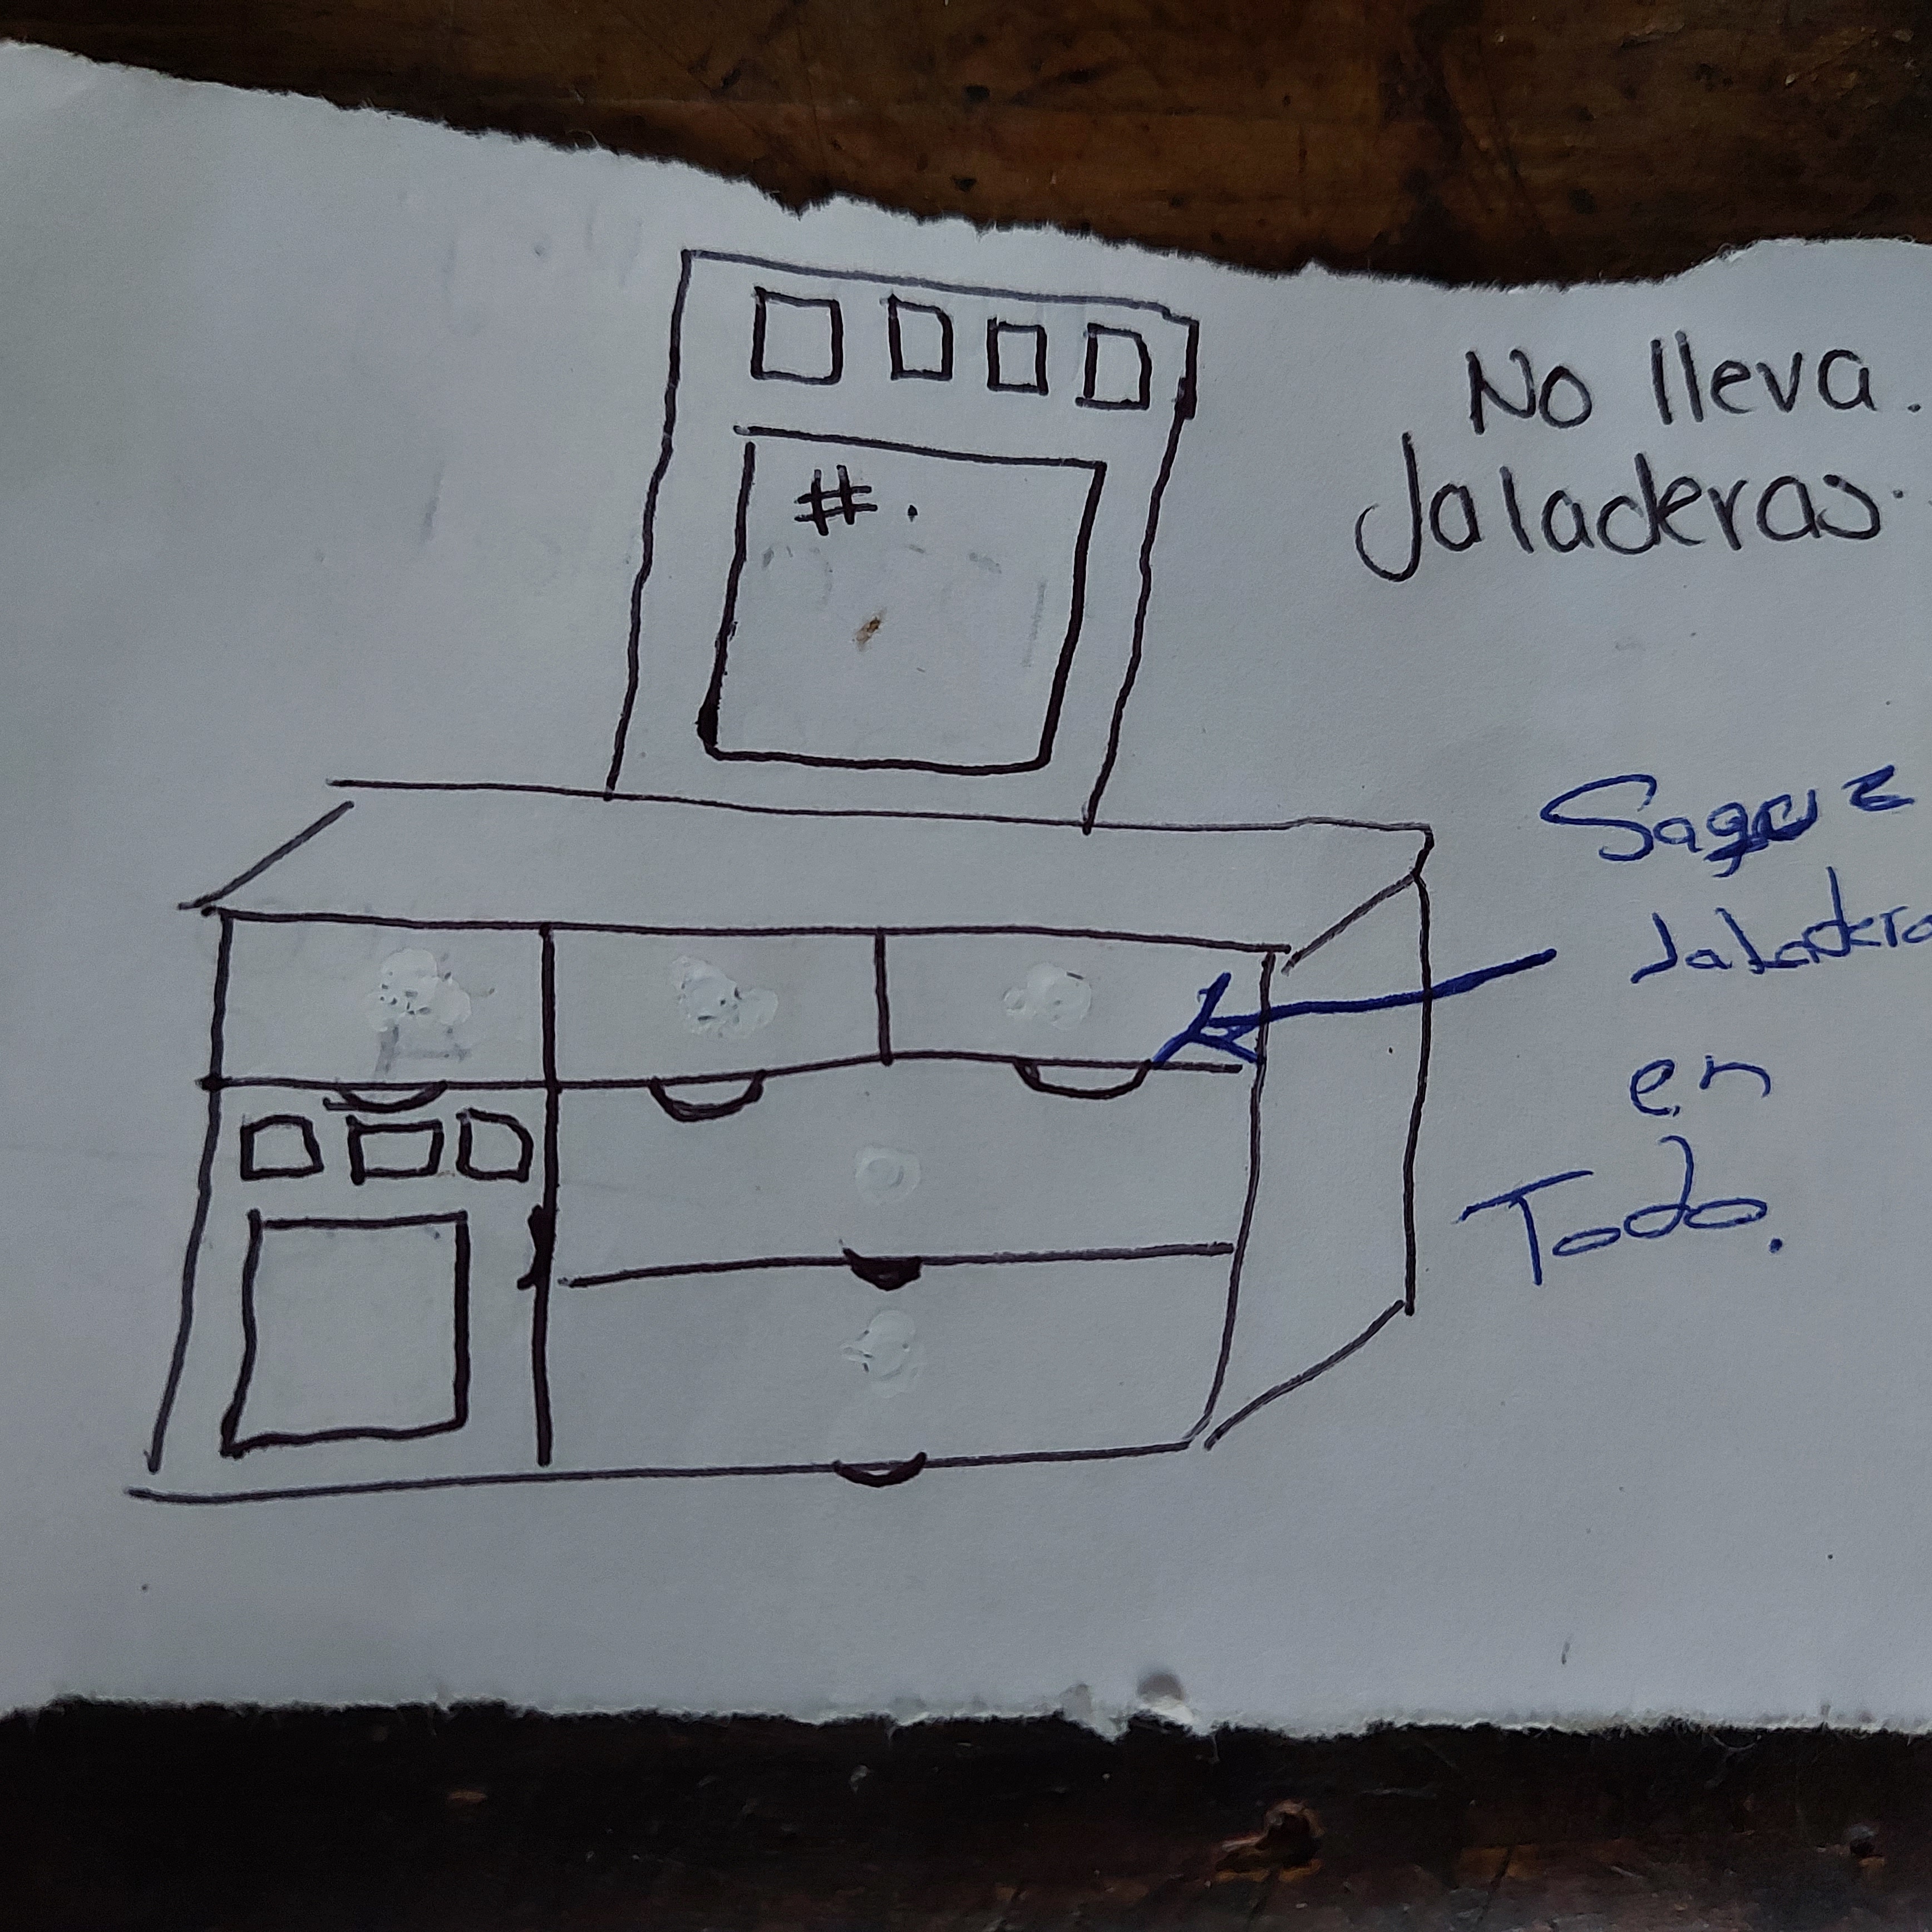 #.
No lleva.
Jaladeras.
Jaladera
en
Todo.